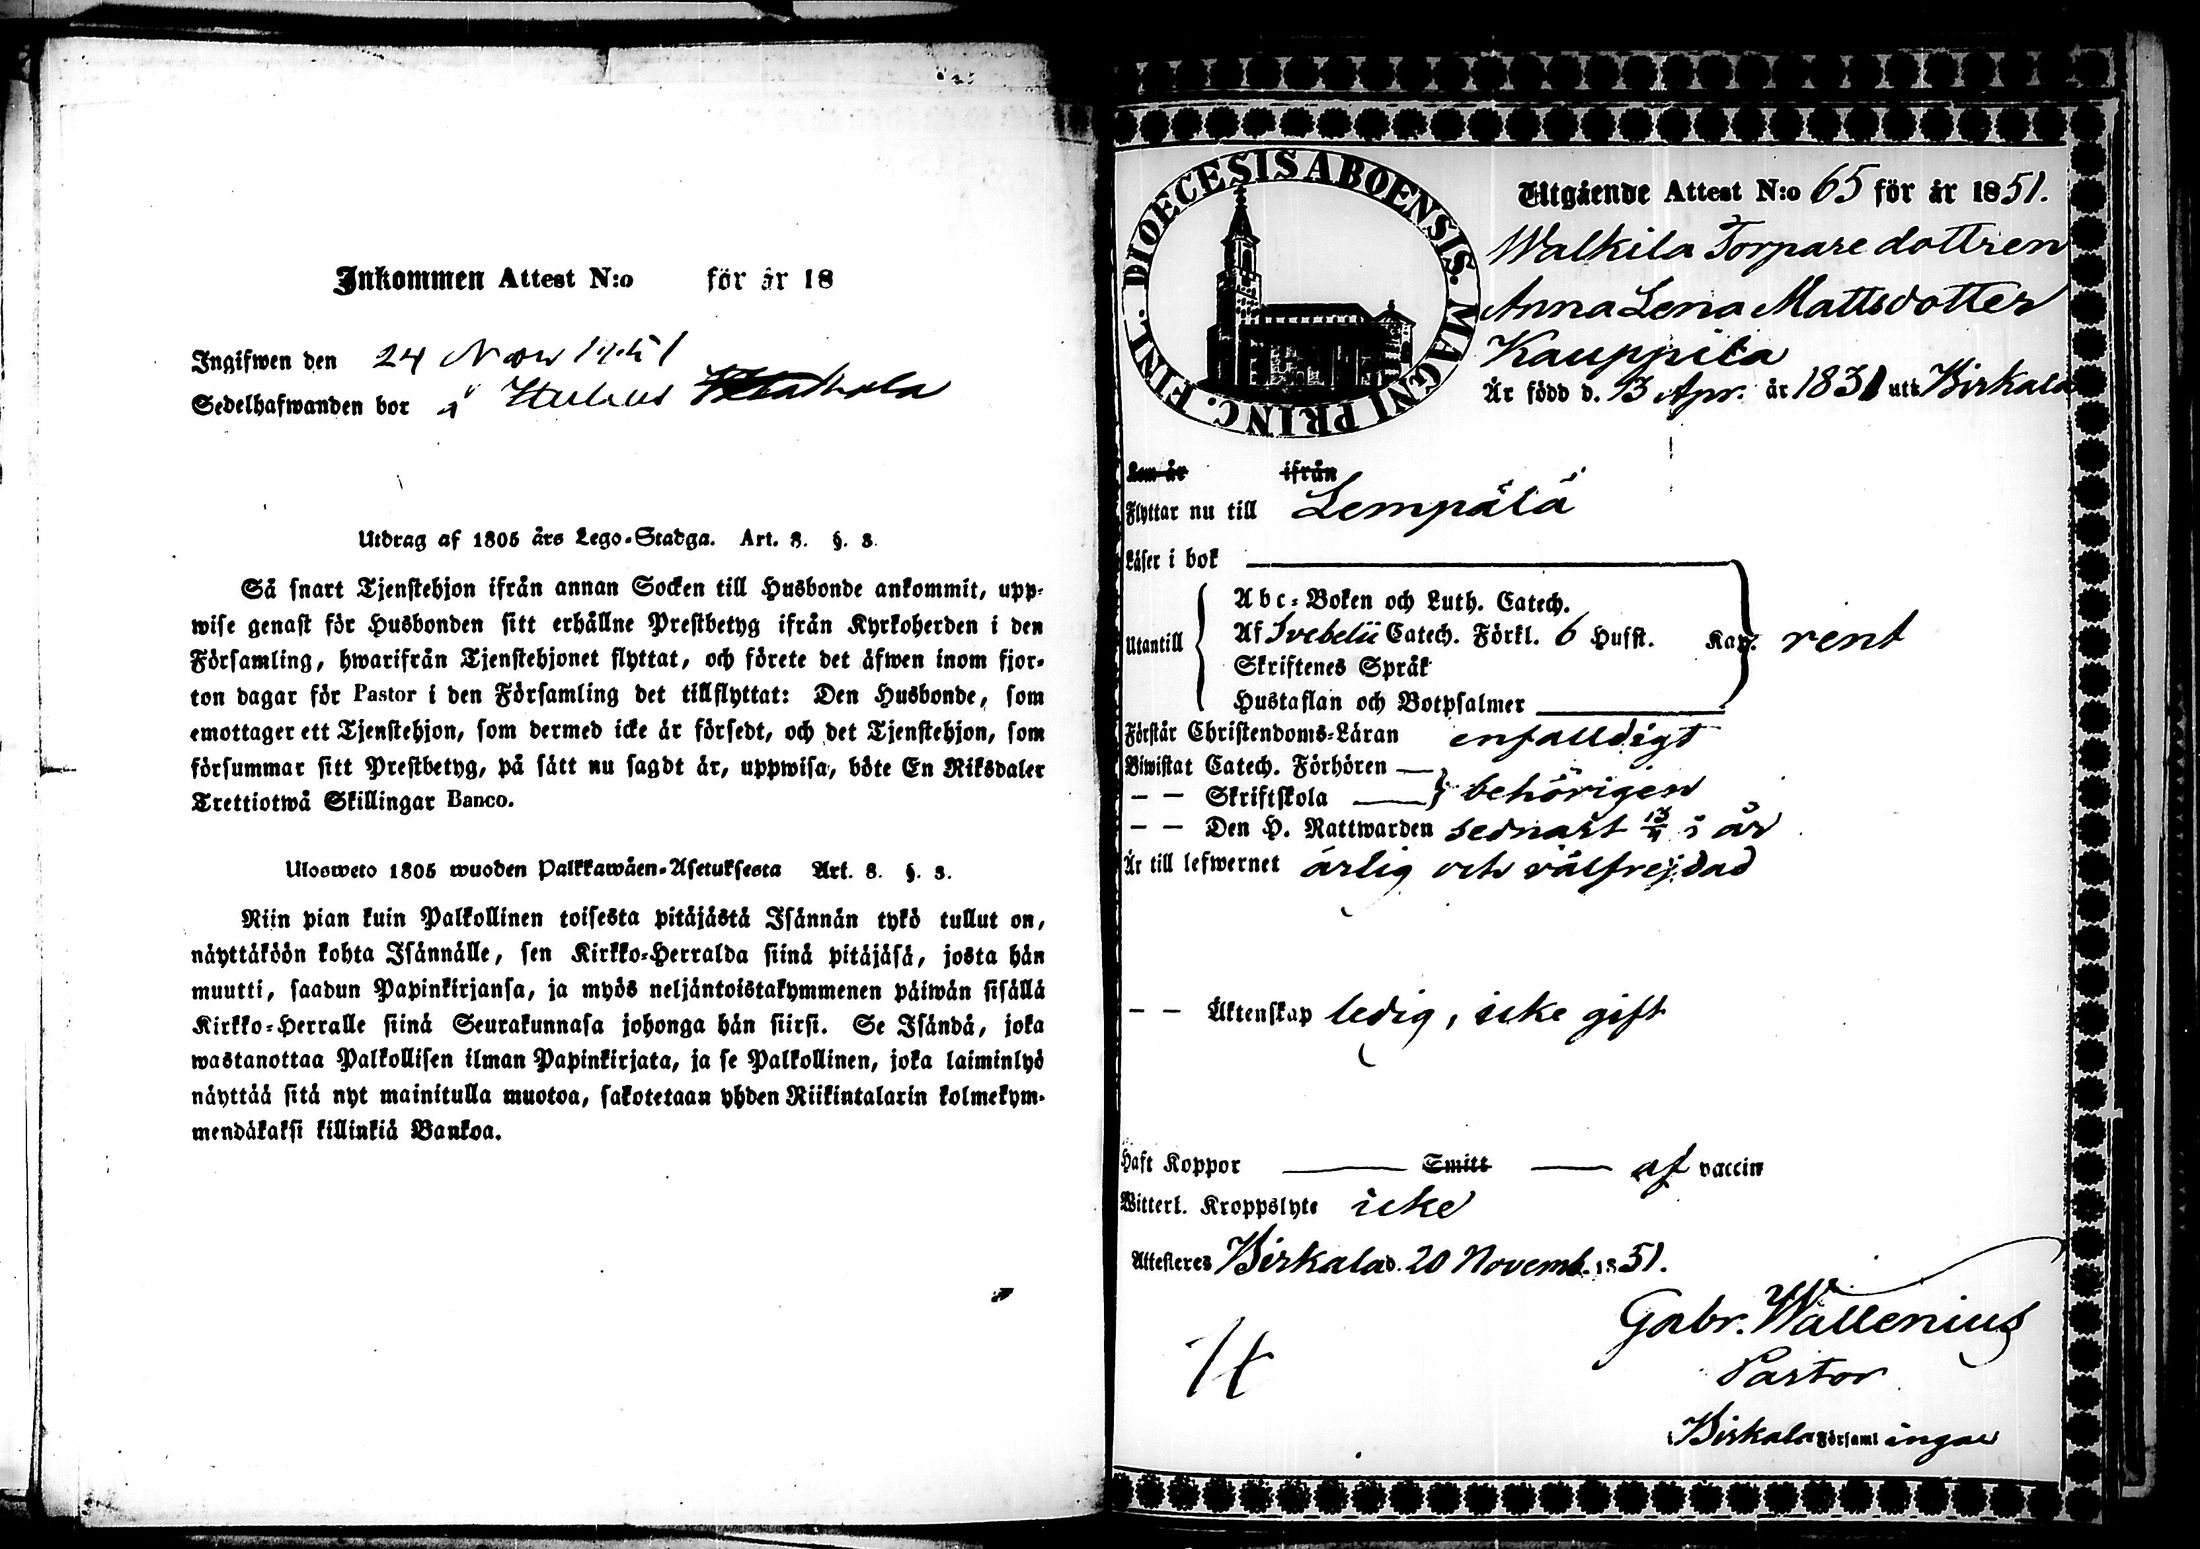 Inkommen Attest N:o för år 18
Ingifwen den 24 Nov 1851
Sedelhafwanden bor å
Utdrag af 1805 års Lego-Stadga. Art. 8. §. 3.
Så snart Tjenstehjon ifrån annan Socken till Husbonde ankommit, upp-
wise genast för Husbonden sitt erhållne Prestbetyg ifrån Kyrkoherden i den
Församling, hwarifrån Tjenstehjonet flyttat, och förete det äfwen inom fjor-
ton dagar för Pastor i den Församling det tillflyttat: Den Husbonde, som
emottager ett Tjenstehjon, som dermed icke är försedt, och det Tjenstehjon, som
försummar sitt Prestbetyg, på sätt nu sagdt är, uppwisa, böte En Riksdaler
Trettiotwå Skillingar Banco.
Ulosweto 1805 wuoden Palkkawäen-Asetuksesta Art. 8. §. 3.
Niin pian kuin Palkollinen toisesta pitäjästä Isännän tykö tullut on,
näyttäköön kohta Isännälle, sen Kirkko-Herralda siinä pitäjäsä, josta hän
muutti, saadun Papinkirjansa, ja myös neljäntoistakymmenen päiwän sisällä
Kirkko-Herralle siinä Seurakunnasa johonga hän siirsi. Se Isändä, joka
wastanottaa Palkollisen ilman Papinkirjata, ja se Palkollinen, joka laiminlyö
näyttää sitä nyt mainitulla muotoa, sakotetaan yhden Riikintalarin kolmekym-
mendäkaksi killinkiä Bankoa.
FINL. DIOECESIS ABOENSIS. MAGNI PRINC.
Utgående Attest N:o 65 för år 1851.
Walkila Torpare dottren
Anna Lena Mattsdotter
Kauppila
Är född d. 13 Apr. år 1831 uti Birkala
Kom år ifrån
Flyttar nu till Lempälä
Läser i bok
Utantill
Abc-Boken och Luth. Catech.
Af Svebelii Catech. Förkl. 6 Hufst. Kap. rent
Skriftenes Språk
Hustaflan och Botpsalmer
Förstår Christendoms-Läran enfalldigt
Biwistat Catech. Förhören
— — Skriftskola behörigen
— — Den H. Nattwarden sednast i år
Är till lefwernet ärlig och välfrejdad
— — Äktenskap ledig, icke gift
Haft Koppor Smitt af vaccin
Witterl. Kroppslyte icke
Attesteres Birkala d. 20 Novemb. 1851.
Gabr. Wallenius
Pastor
i Birkala Församlingar